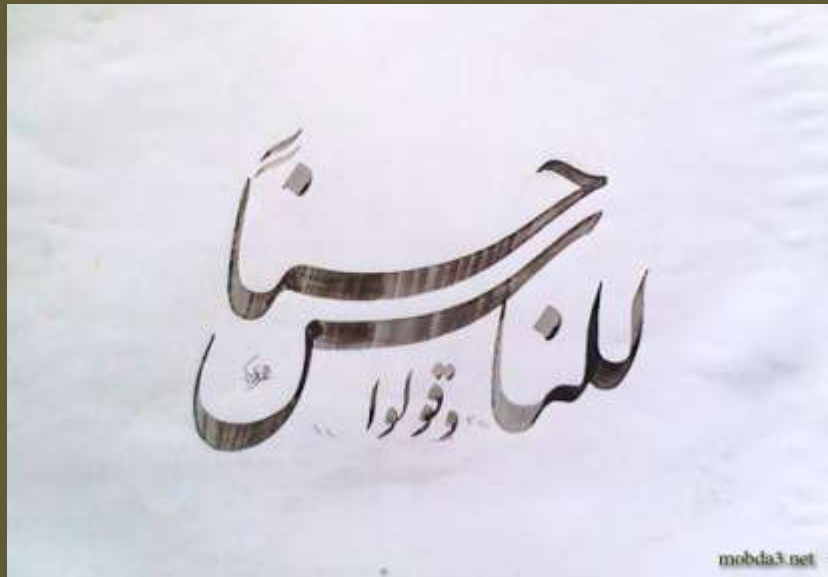 وقولوا
للناس
حسناً
mobda3.net